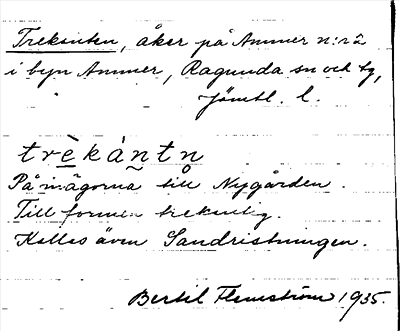 Trekanten, åker på Ammer n:r 2
i byn Ammer, Ragunda sn och tg,
Jämtl. l.
trèkàntn
På inägorna till Nygården.
Till formen trekantig.
Kallas även Sandristningen.
Bertil Flemström 1935.